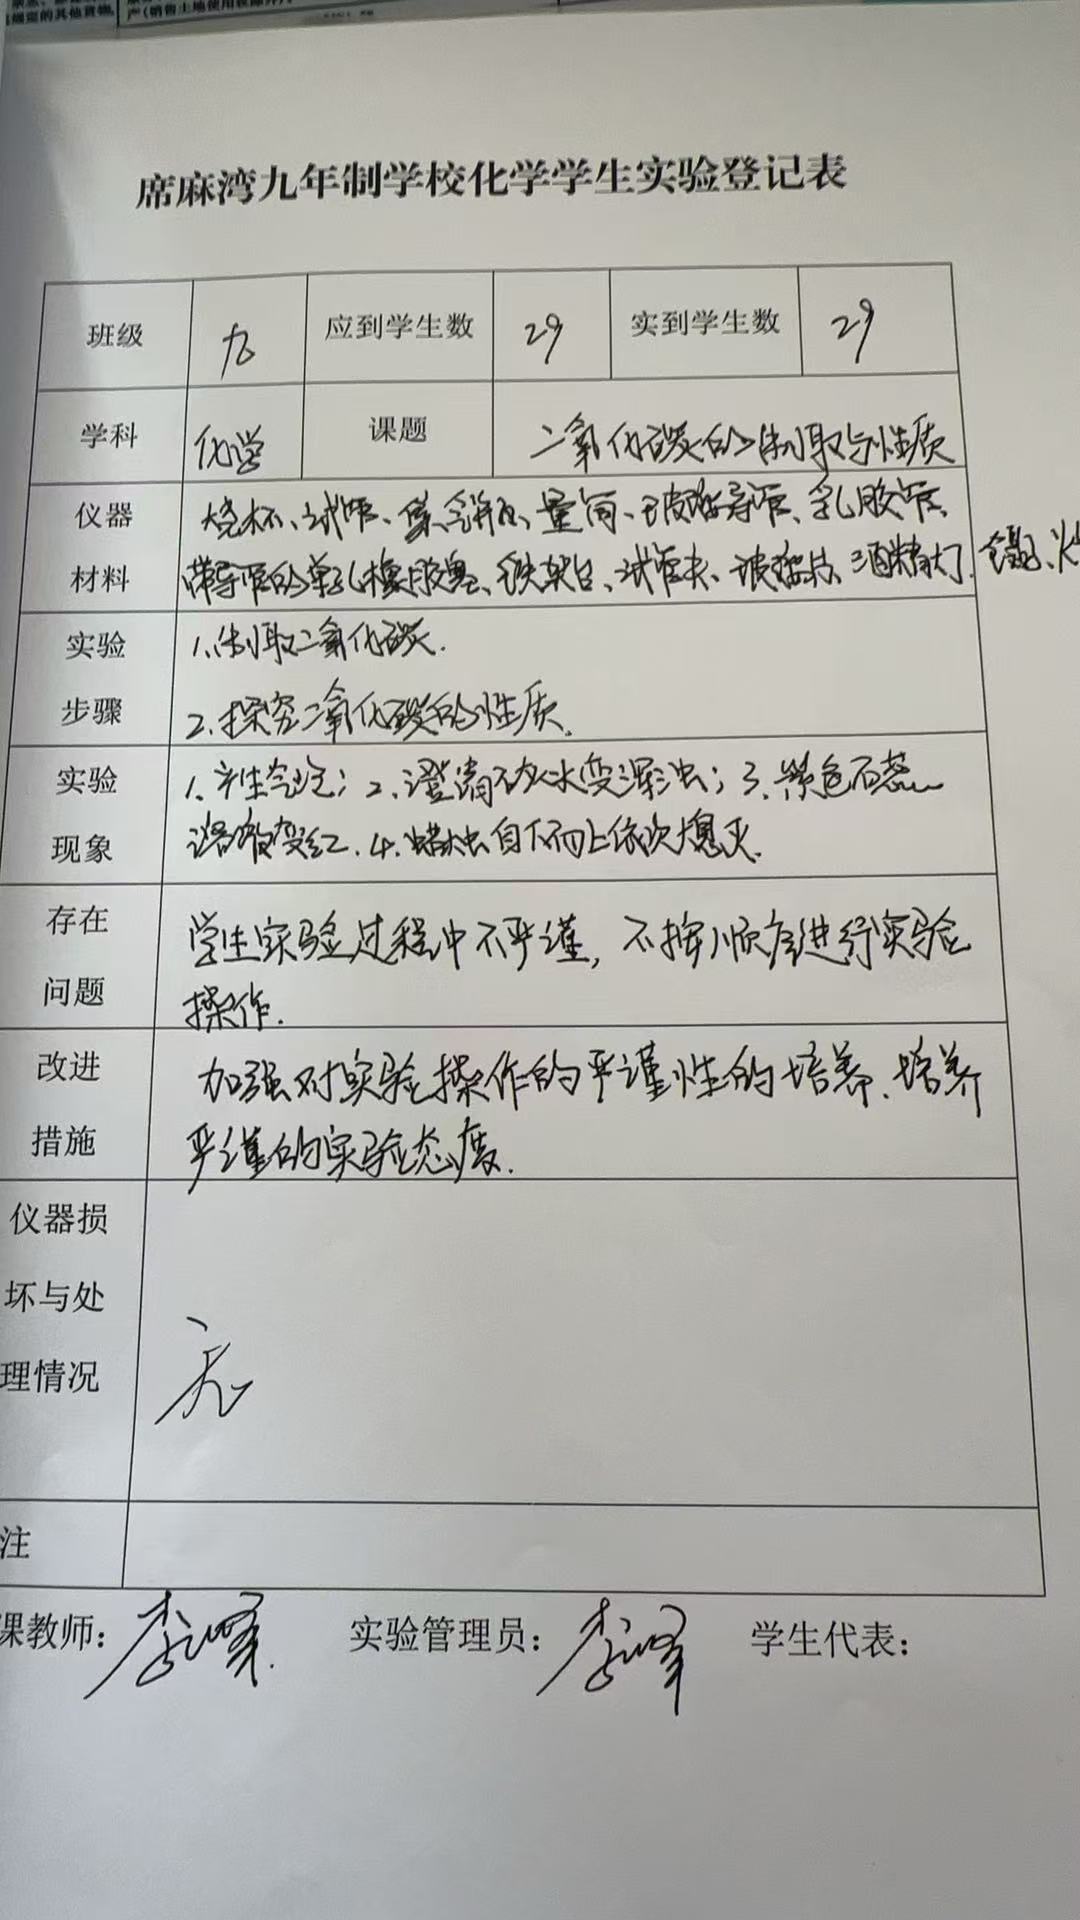 规定的其他货物。
产(销售土地使用权除外)
席麻湾九年制学校化学学生实验登记表
班级 九 应到学生数 29 实到学生数 29
学科 化学 课题 二氧化碳的制取与性质
仪器 烧杯、试管、集气瓶、量筒、玻璃导管、乳胶管、
材料 带导管的单孔橡胶塞、铁架台、试管夹、玻璃片、酒精灯、镊、火
实验 1.制取二氧化碳.
步骤 2.探究二氧化碳的性质.
实验 1.产生气泡；2.澄清石灰水变浑浊；3.紫色石蕊
现象 溶液变红.4.蜡烛自下而上依次熄灭.
存在 学生实验过程中不严谨，不按顺序进行实验
问题 操作.
改进 加强对实验操作的严谨性的培养、培养
措施 严谨的实验态度.
仪器损
坏与处
理情况 无
注
课教师：李 实验管理员：李 学生代表：